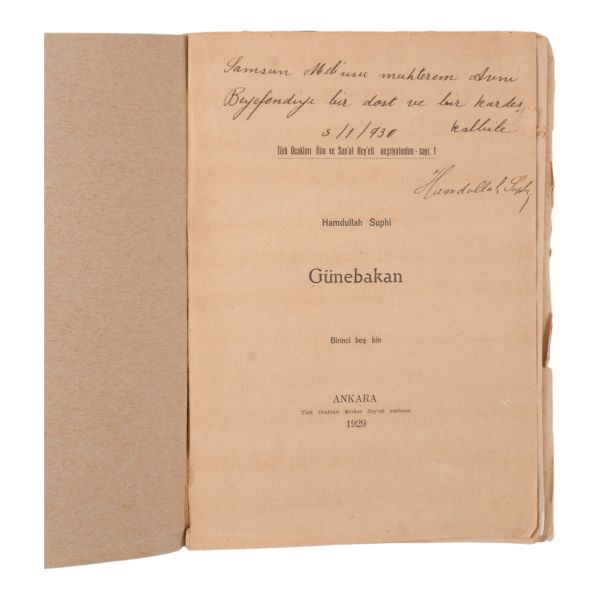 Samsun Meb'usu muhterem Avni
Beyefendiye bir dost ve bir kardeş
kalbile
3/1/930
Türk Ocakları İlim ve San'at Hey'eti neşriyatından - sayı: 1
Hamdullah Suphi
Hamdullah Suphi
Günebakan
Birinci beş bin
ANKARA
Türk Ocakları Merkez Hey'eti matbaası
1929